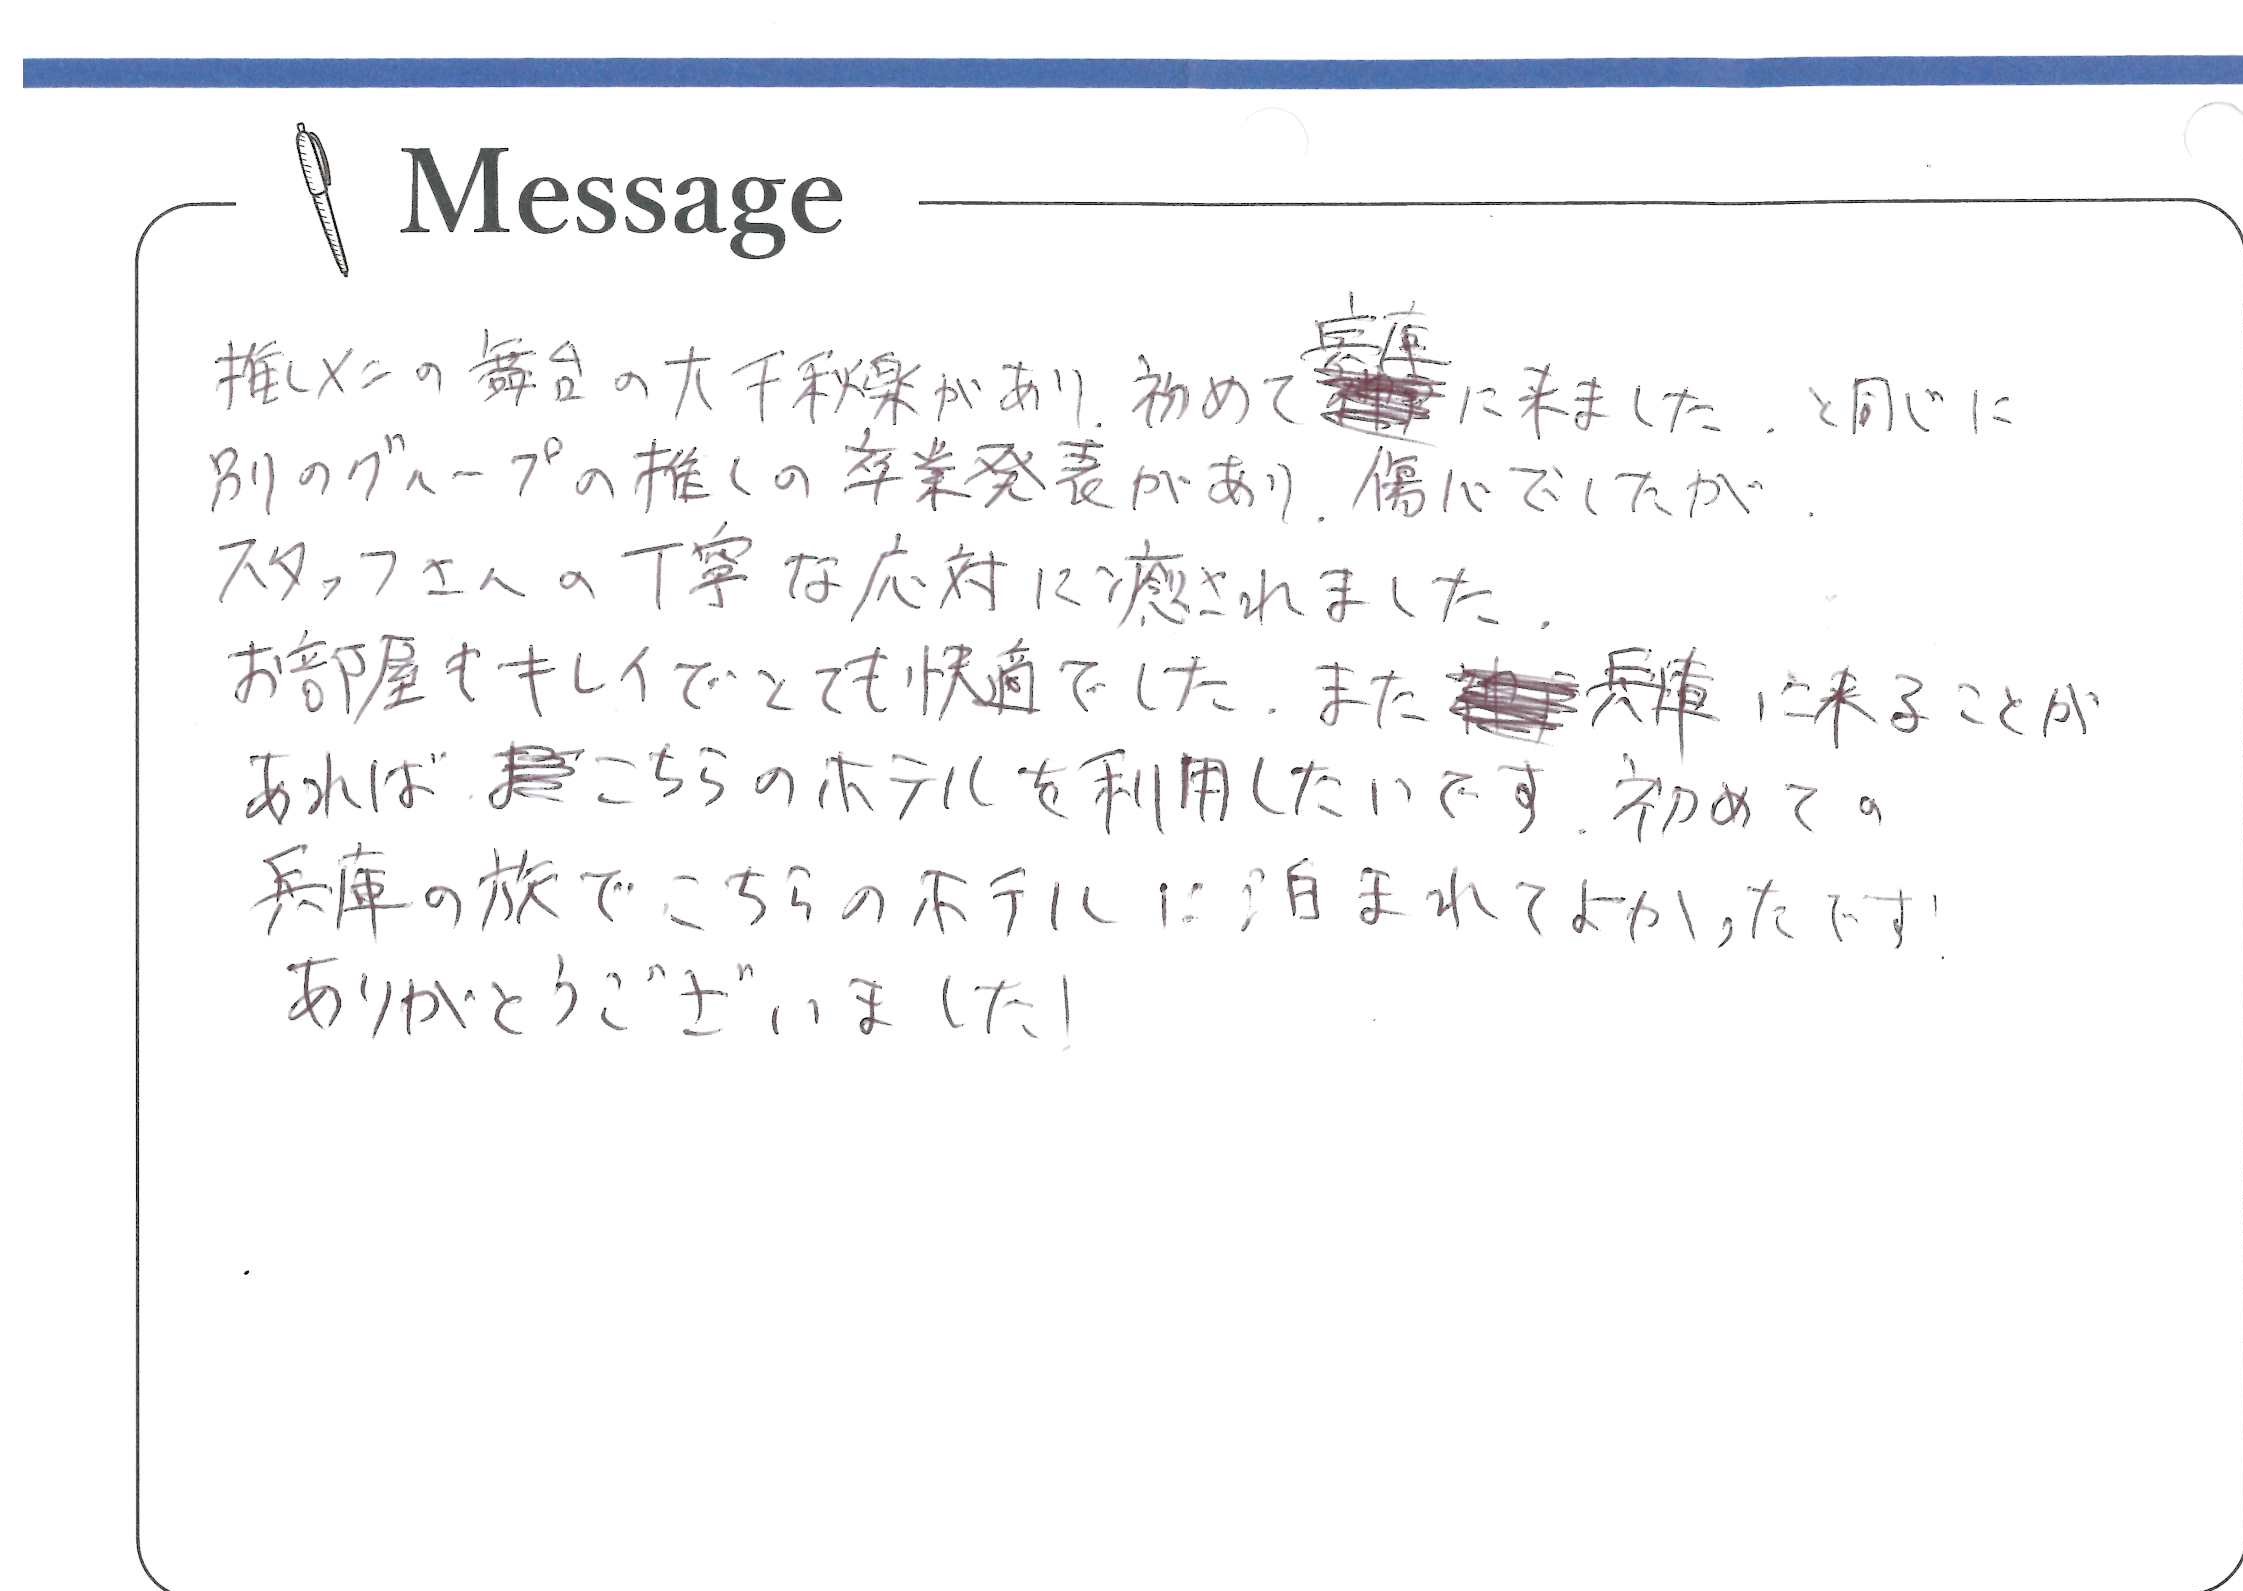 Message
推しメンの舞台の大千秋楽があり、初めて兵庫に来ました。と同じに
別のグループの推しの卒業発表があり、傷心でしたが、
スタッフさんの丁寧な応対に癒されました。
お部屋もキレイでとても快適でした。また兵庫に来ることが
あればこちらのホテルを利用したいです。初めての
兵庫の旅でこちらのホテルに泊まれてよかったです!
ありがとうございました!